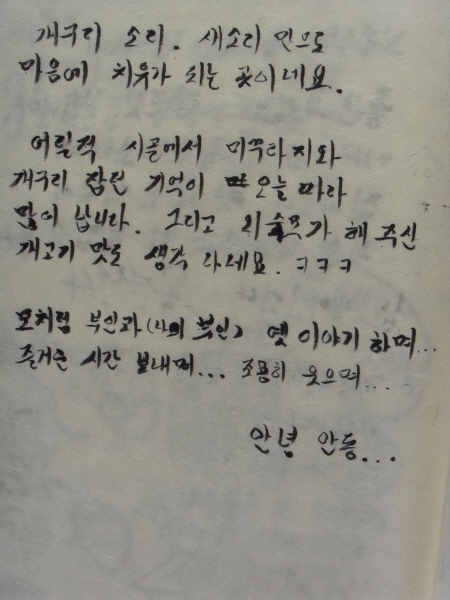 개구리 소리. 새소리 만으로
마음에 치유가 되는 곳이네요.
어릴적 시골에서 미꾸라지와
개구리 잡던 기억이 오늘 따라
많이 납니다. 그리고 외숙모가 해 주신
개고기 맛도 생각 나네요. ㅋㅋㅋ
모처럼 부인과 (나의 부인) 옛 이야기 하며...
즐거운 시간 보내며... 조용히 웃으며...
안녕 안동...